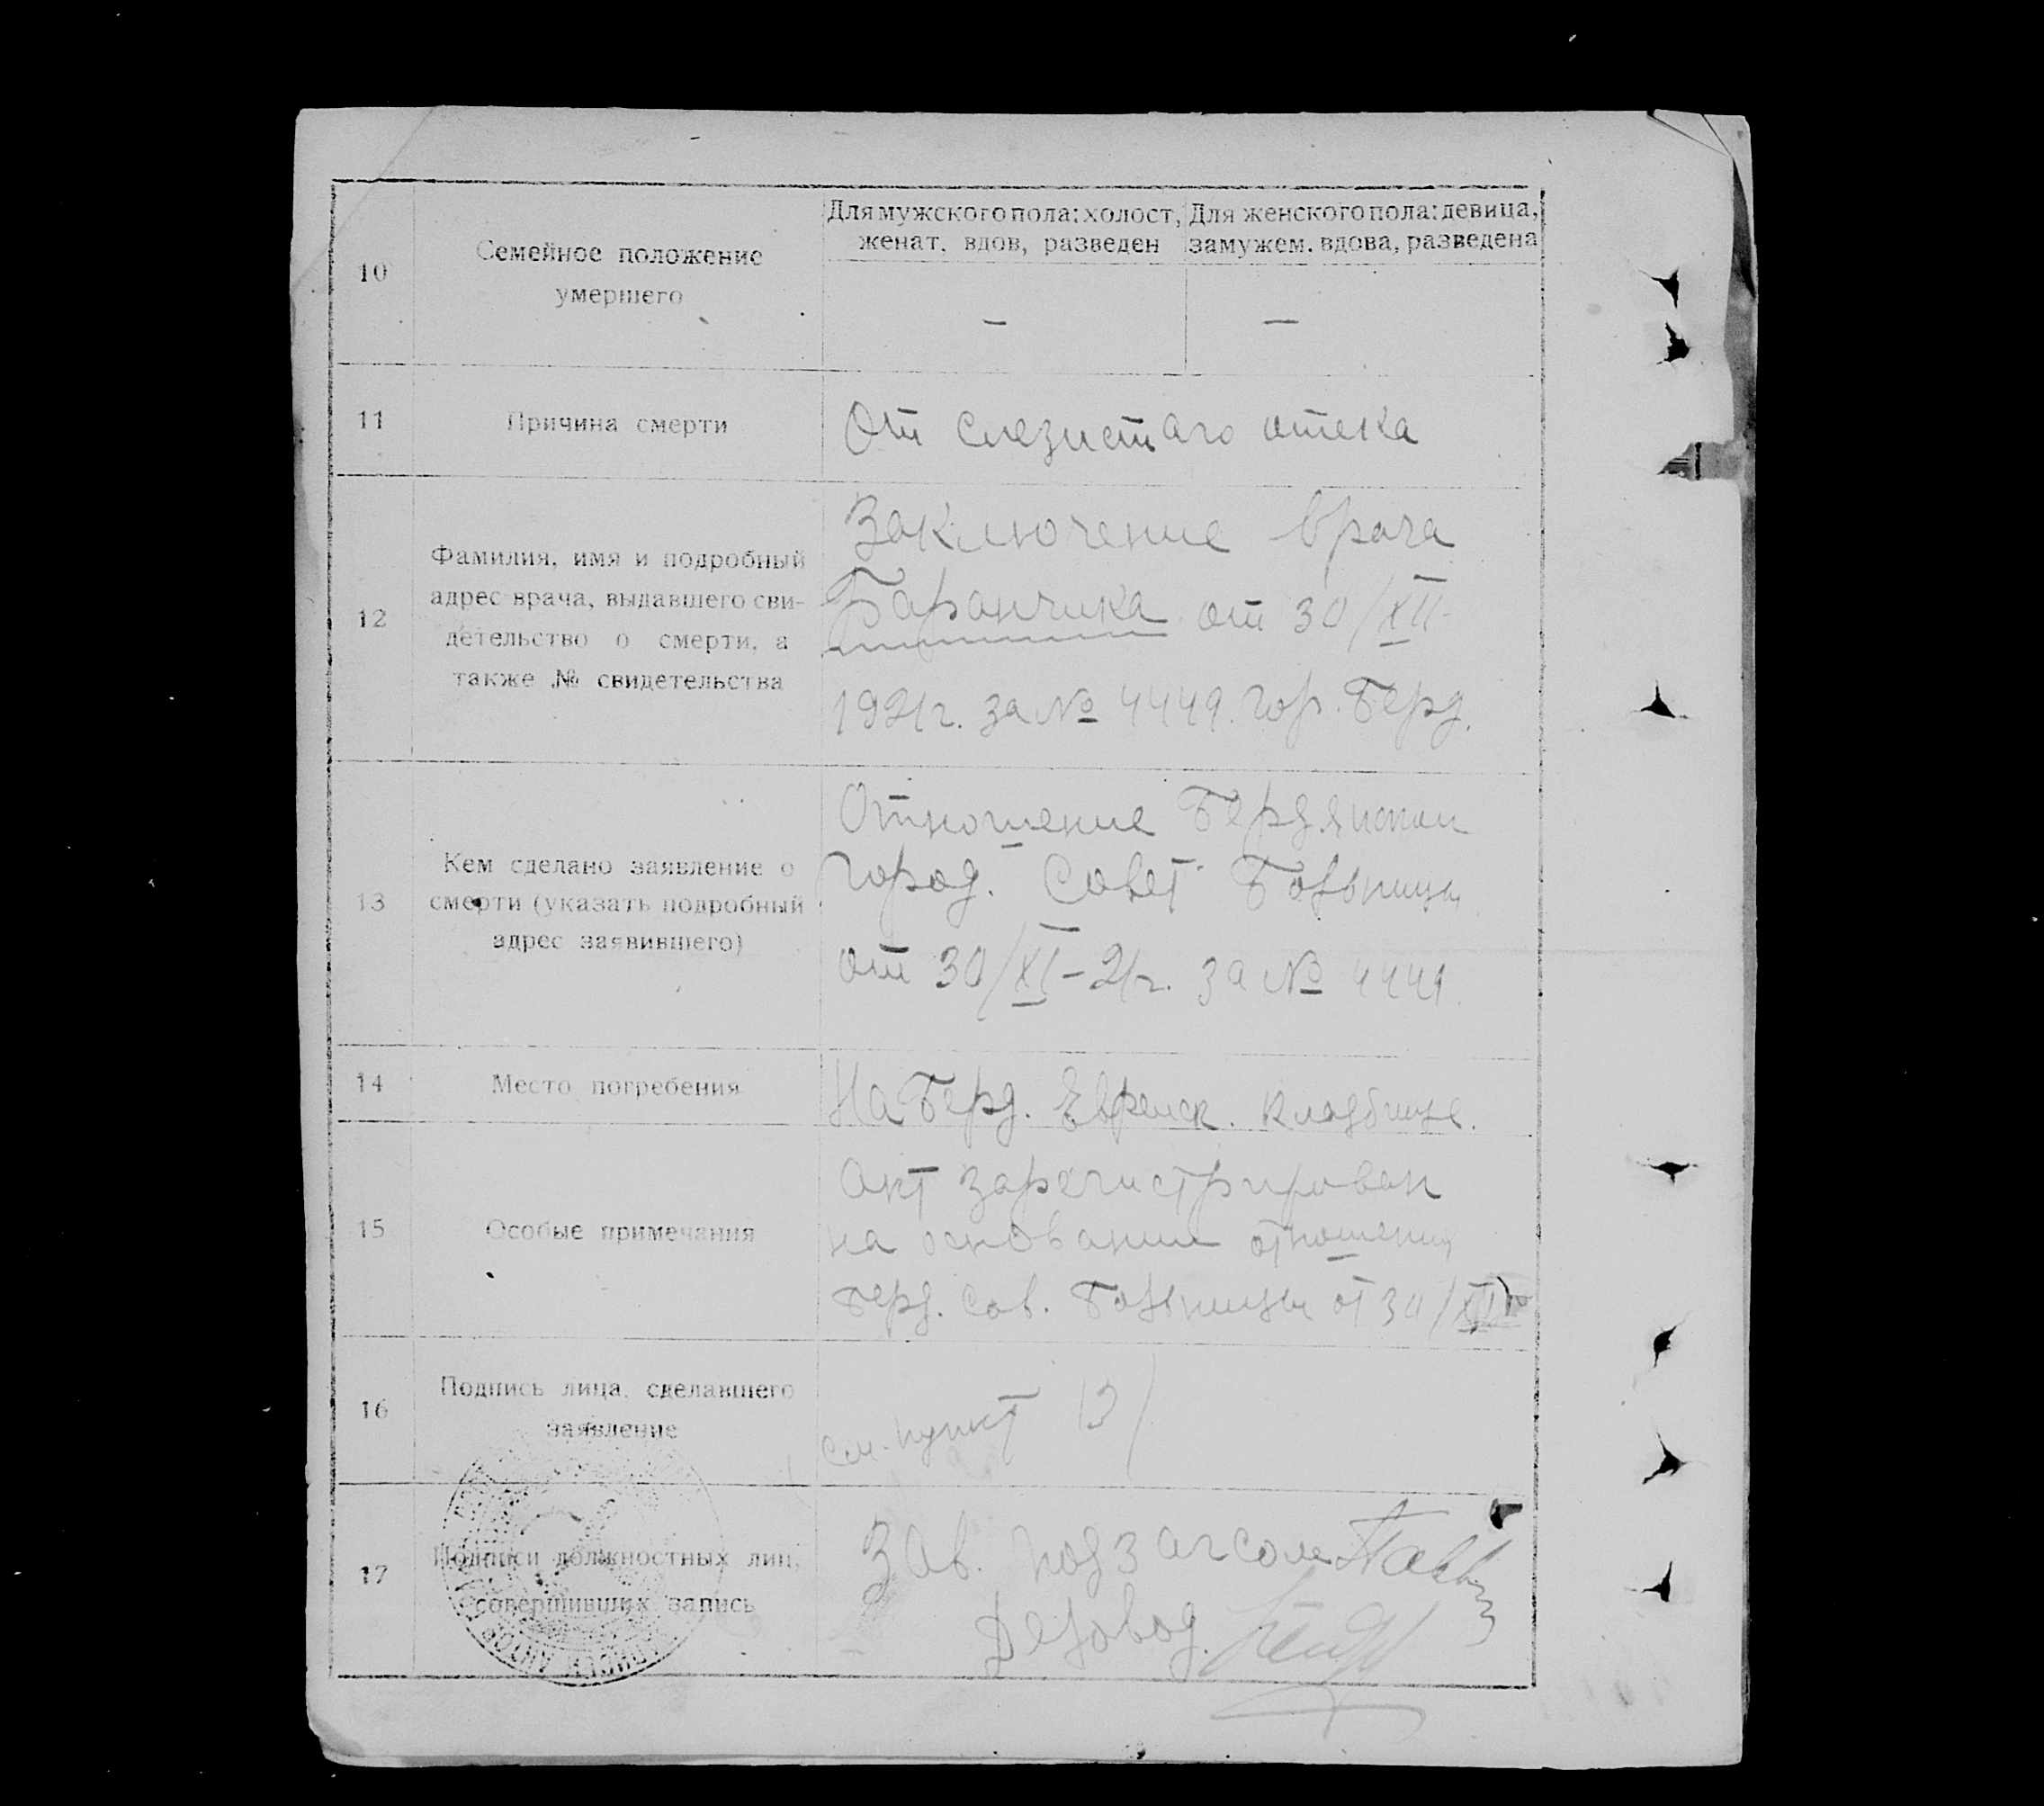 10
Семейное положение
умершего
Для мужского пола: холост,
женат, вдов, разведен
Для женского пола: девица,
замужем, вдова, разведена
—
—
11
Причина смерти
От слезистаго отека
12
Фамилия, имя и подробный
адрес врача, выдавшего сви-
детельство о смерти, а
также № свидетельства
Заключение врача
Баранчика от 30/XII-
1921г. за № 4449. гор. Берд.
13
Кем сделано заявление о
смерти (указать подробный
адрес заявившего)
Отношение Бердянской
Город. Совет. Больницы
от 30/XII-21г. за № 4449.
14
Место погребения
На Берд. Еврейск. кладбище.
15
Особые примечания
Акт зарегистрирован
на основании отношения
Берд. Сов. Больницы от 30/XII
16
Подпись лица, сделавшего
заявление
см. пункт 13/
17
Подписи должностных лиц,
совершивших запись
Зав. подзагсом
Деловод.